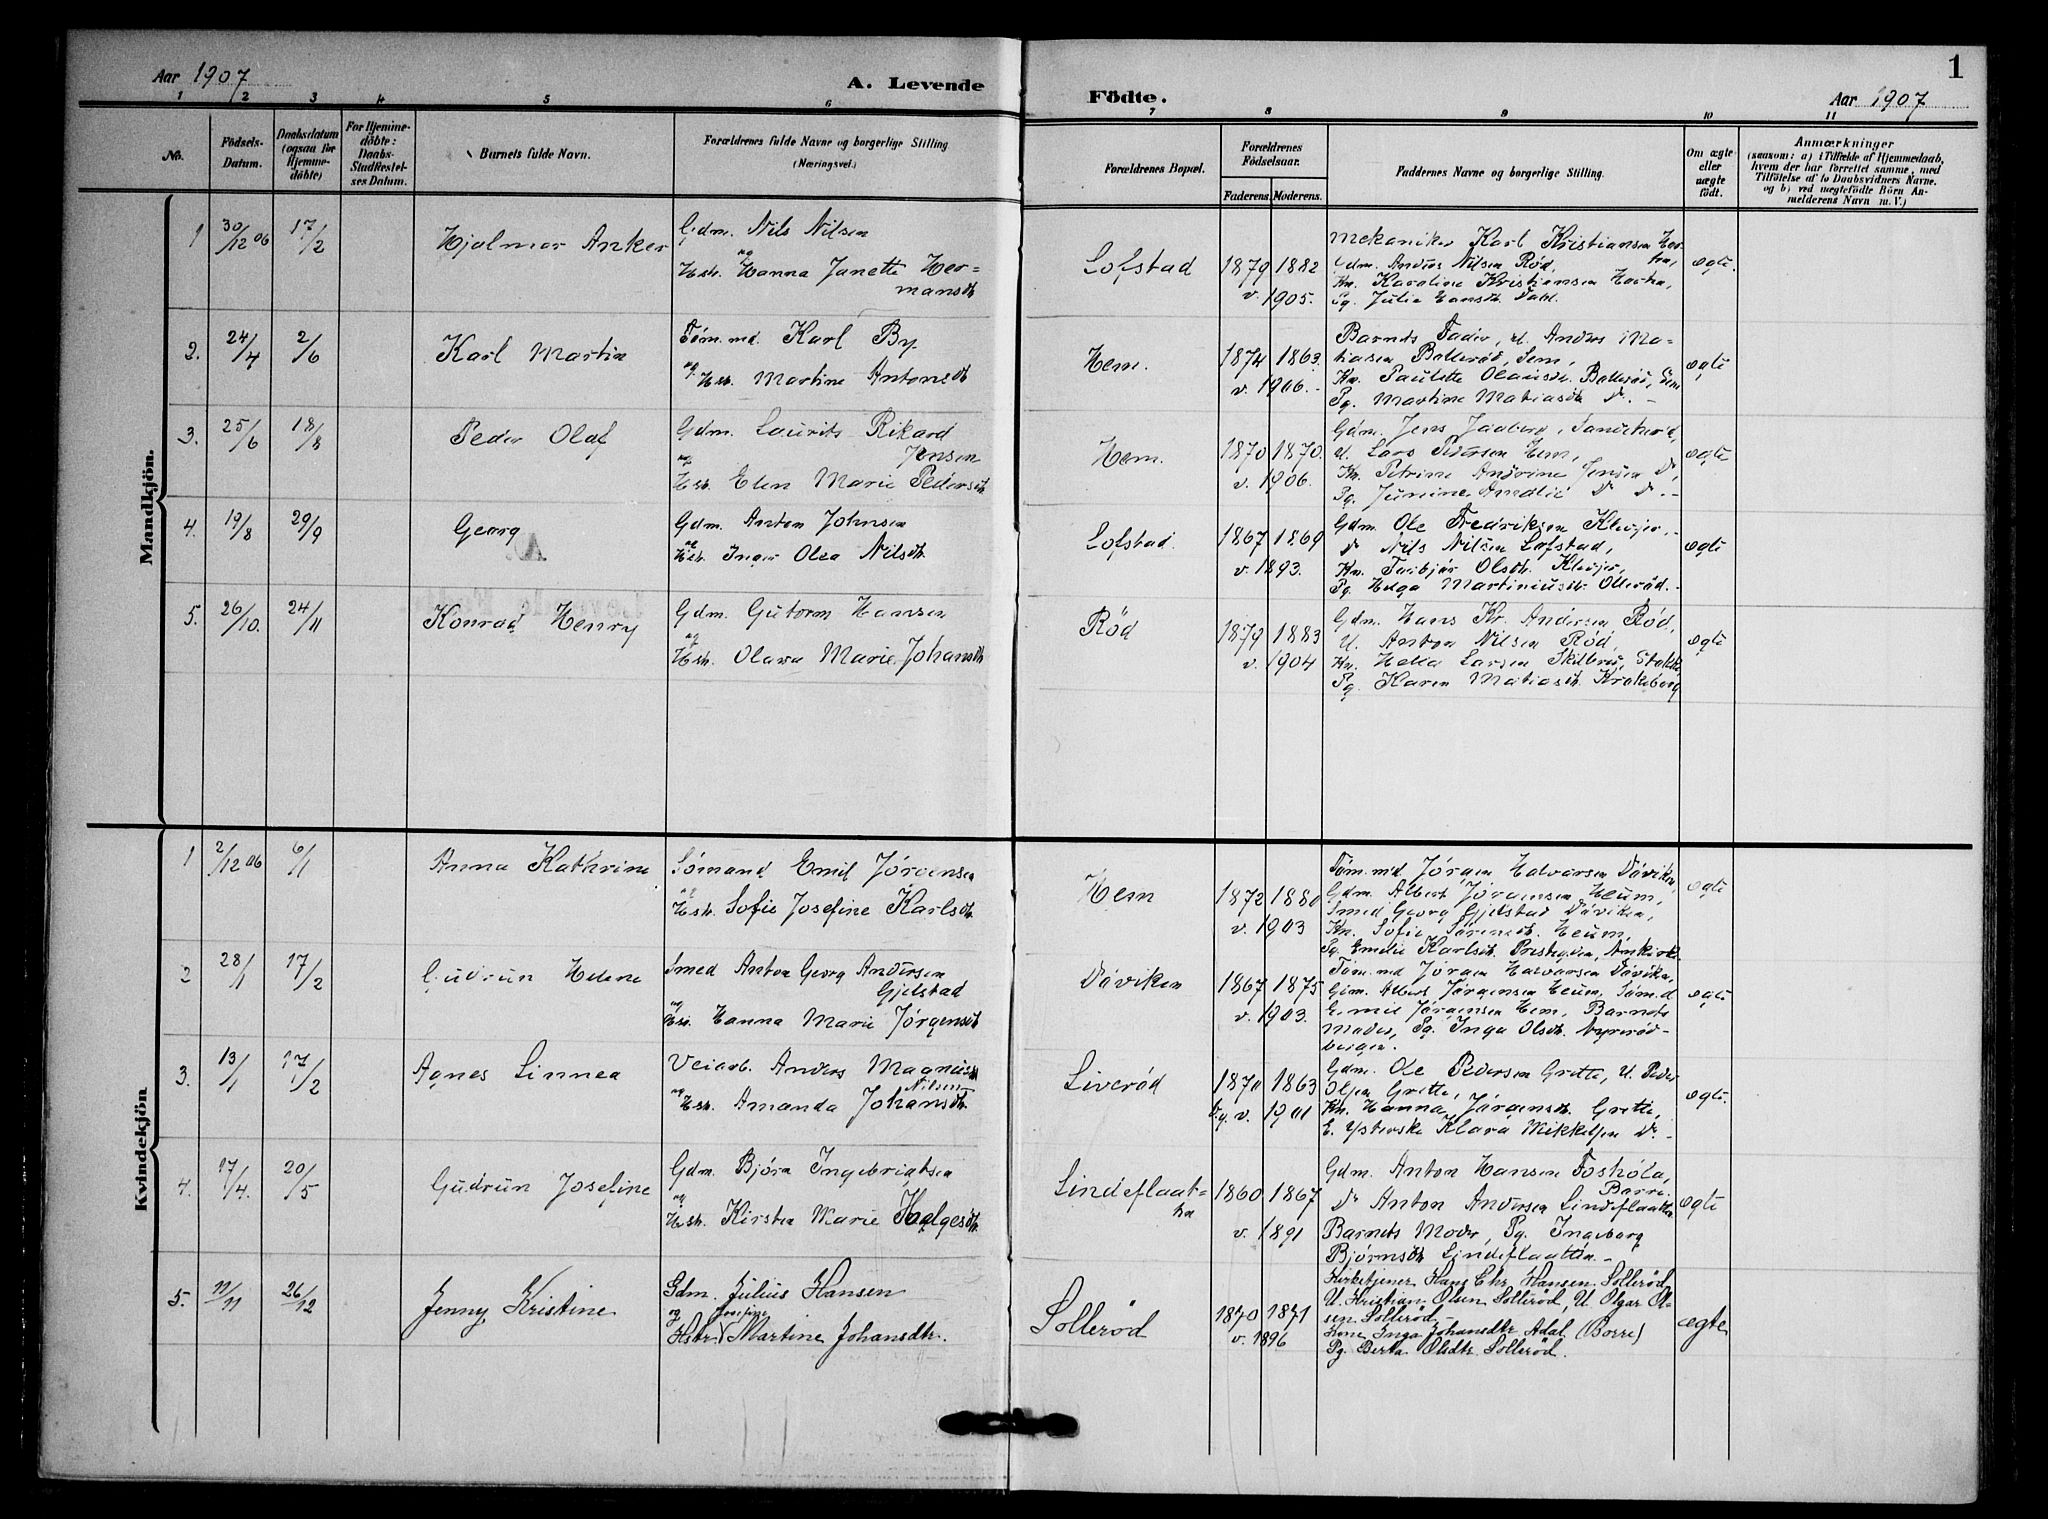 Aar 1907
A. Levende
Födte.
Aar 1907
1
1 2 3 4 5 6 7 8 9 10 11
No.
Födsels-
Datum.
Daabsdatum
(ogsaa for
Hjemme-
döbte)
For Hjemme-
döbte:
Daabs-
Stadfestel-
ses Datum.
Barnets fulde Navn.
Forældrenes fulde Navne og borgerlige Stilling
(Næringsvei.)
Forældrenes Bopæl.
Forældrenes
Födselsaar.
Faderens. Moderens.
Faddernes Navne og borgerlige Stilling.
Om ægte
eller
uægte
födt.
Anmærkninger
(saasom: a) i Tilfælde af Hjemmedaab,
hvem der har forrettet samme, med
Tilföielse af to Daabsvidners Navne,
og b) ved uægtefödte Börn An-
melderens Navn m. V.)
Mandkjön.
1 30/12 06 17/2 Hjalmar Anker
Gdm. Nils Nilsen
og
Hstr. Hanna Janette Her-
mansdtr
Lofstad
1879 1882
v. 1905.
Mekaniker Karl Kristiansen
Gdm. Anders Nilsen Rød,
Kn. Karoline Kristiansen
Pg. Julie Hansdtr. Dahl.
ægte.
2. 24/4 2/6 Karl Martin
Tøm.md. Karl By
og Hstr. Martine Antonsdtr
Hem.
1874 1863.
v. 1906.
Barnets Fader, U. Anders Ma-
tiasen Bollerød, Sem,
Kn. Paulette Olausdtr. Bollerød, Sem
Pg. Martine Matiasdtr Do. -
ægte
3. 25/6 18/8 Peder Olaf
Gdm. Laurits Rikard
Jensen
og
Hstr. Elen Marie Pedersdtr
Hem.
1870 1870.
v. 1906.
Gdm. Jens Jaaberg, Sandeherd,
U. Lars Pedersen Hem,
Kn. Petrine Andrine Jensen Do,
Pg. Junine Amalie Do Do. -
ægte
4. 19/8 29/9 Georg
Gdm. Anton Johnsen
og
Hstr. Inger Olea Nilsdtr
Lofstad.
1867 1869
v. 1893.
Gdm. Ole Fredriksen Klevjer,
Do Nils Nilsen Lofstad,
Kn. Torbjør Olsdtr. Klevjer,
Pg. Helga Martiniusdtr. Ollerød. -
ægte
5. 26/10. 24/11 Konrad Henry
Gdm. Gutorm Hansen
og
Hstr. Olava Marie Johansdtr
Rød
1879 1883
v. 1904
Gdm. Hans Kr. Andersen Rød,
U. Anton Nilsen Rød,
Kn. Helea Larsen Skilbred, Stokke
Pg. Karen Matiasdtr. Krakeborg
ægte
Kvindekjön
1 2/12 06 6/1 Anna Kathrine
Sømand Emil Jørgensen
og
Hstr. Sofie Josefine Karlsdtr.
Hem
1872 1880
v. 1903
Tøm.md Jørgen Halvorsen Døviken,
Gdm. Albert Jørgensen Heum,
Smed Georg Gjelstad Døviken,
Kn. Sofie Sørensdtr. Heum,
Pg. Emelie Karlsdtr. Prestegden, Arnkirke.
ægte
2 28/1 17/2 Gudrun Helene
Smed Anton Georg Andersen
Gjelstad
og
Hstr. Hanna Marie Jørgensdtr
Døviken
1867 1875
v. 1903.
Tøm.md Jørgen Halvorsen Døviken,
Gdm. Albert Jørgensen Heum, Søm.d
Emil Jørgensen Hem, Barnets
Moder, Pg. Inga Olsdtr. Nyrerød-
bergen.
ægte
3. 13/1 17/2 Agnes Linnea
Veiarb. Anders Magnus
Nilsen
og Hstr. Amanda Johansdtr.
Liverød
1870 1863
v. 1901
Gdm. Ole Pedersen Grette, U. Peder
Olsen Grette,
Kn. Hanna Jørgensdtr. Grette,
E. Ysterske Klara Mikkelsen Do. -
ægte.
4. 17/4. 20/5 Gudrun Josefine
Gdm. Bjørn Ingebrigtsen
og
Hstr. Kirsten Marie Helgesdtr.
Lindeflaat-
ten
1860 1867
v. 1891
Gdm. Anton Hansen Foshøla,
Borre.
Do Anton Andersen Lindeflaatten
Barnets Moder, Pg. Ingeborg
Bjørnsdtr Lindeflaatten -
ægte
5. 11/11 26/12 Jenny Kristine
Gdm. Julius Hansen
og Josefine
Hstr. Martine Johansdtr.
Sollerød
1870 1871
v. 1896
Kirketjener Hans Chr. Hansen Sollerød
U. Kristian Olsen Sollerød, U. Olgar Ol-
sen Sollerød -
Kone Inga Johansdtr Adal (Borre)
Pg. Berta Olsdtr. Sollerød.
ægte